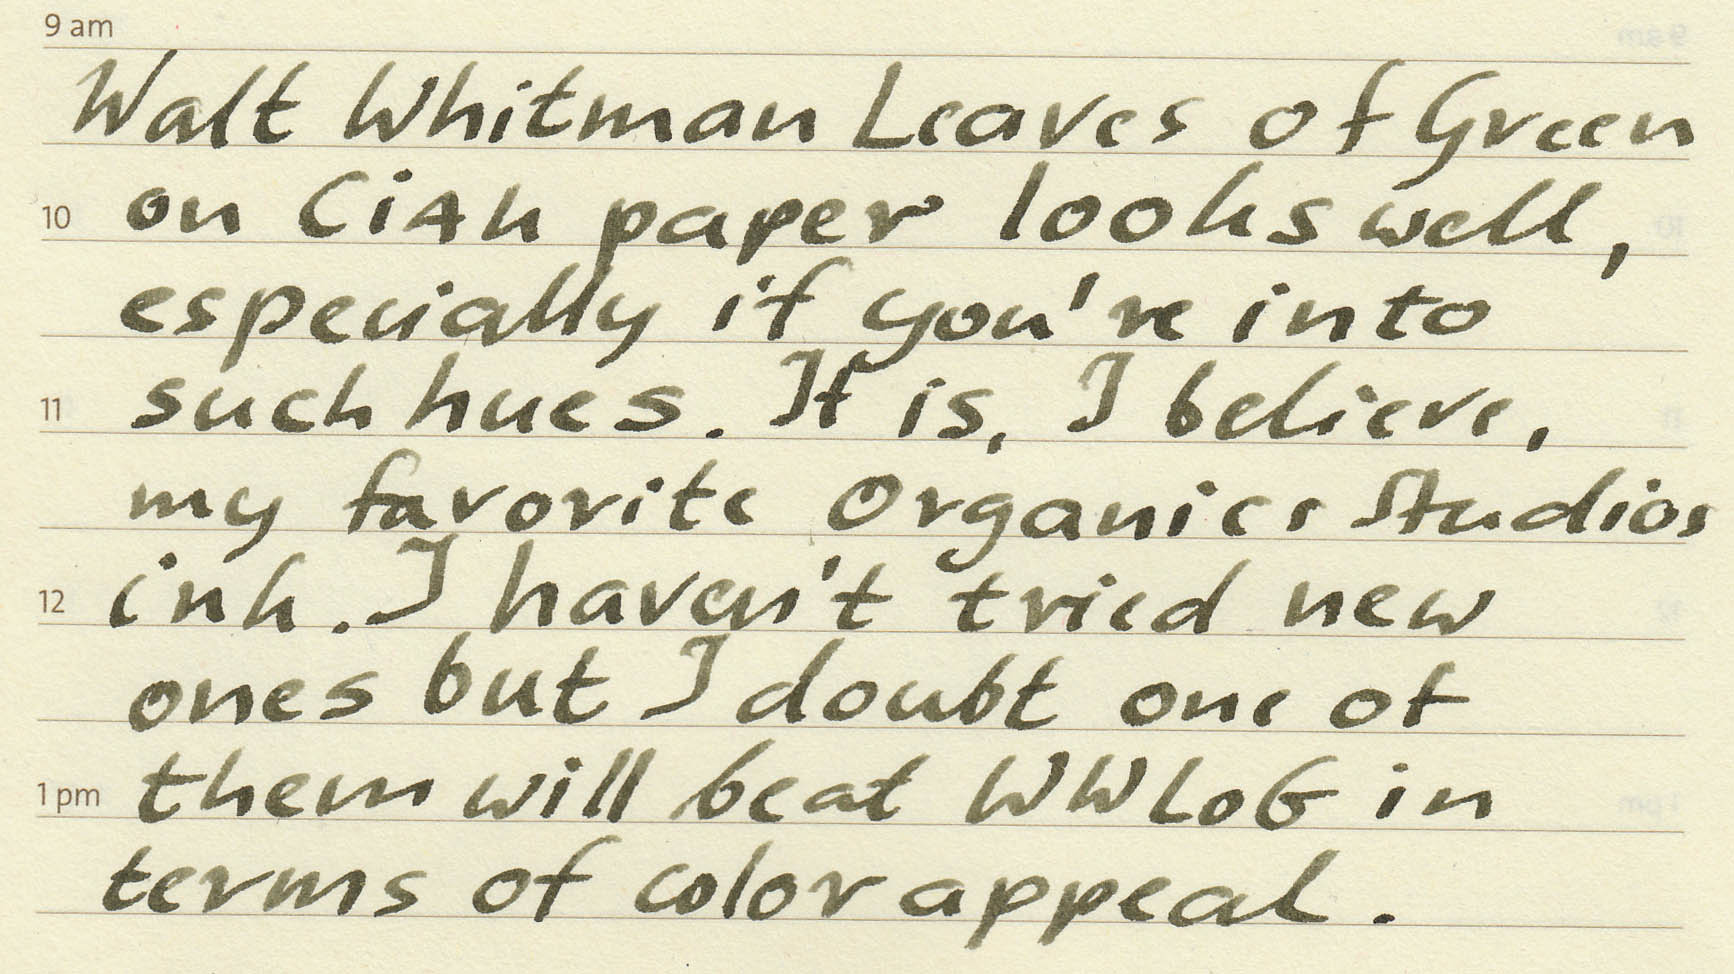 9 am
Walt Whitman Leaves of Green
10 on Ciak paper looks well,
especially if you're into
11 such hues. It is, I believe,
my favorite Organics Studios
12 ink. I haven't tried new
ones but I doubt one of
1 pm them will beat WWLoG in
terms of color appeal.